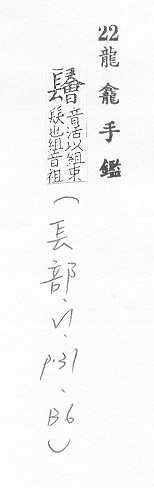 22 龍龕手鑑
音活以組束
髮也組音祖
(長部．VI．p.37．B6)